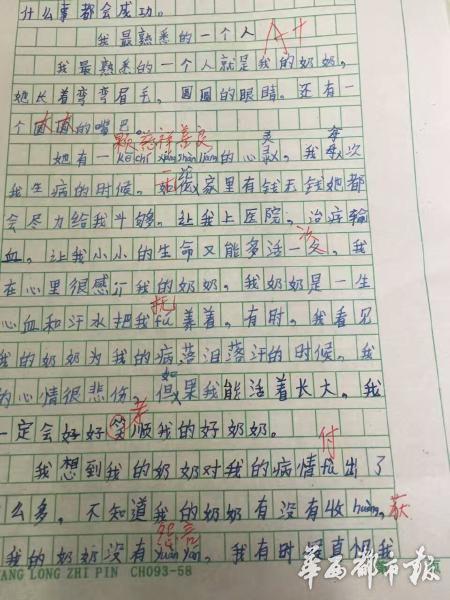 什么事都会成功。
我最熟悉的一个人
A+
我最熟悉的一个人就是我的奶奶，
她长着弯弯眉毛，圆圆的眼睛。还有一
个大大的嘴巴。
颗慈祥善良 灵 每
她有一ke ci xiang shan liang的心灵。我每次
我生病的时候。 家里有钱无钱她都
会尽力给我斗够。让我上医院，治病输
血。让我小小的生命又能多活一次。我
在心里很感 我的奶奶。我奶奶是一生
抚
心血和汗水把我fu养着。有时。我看见
我的奶奶为我的病落泪落汗的时候。我
如
的心情很悲伤，但果我能活着长大。我
孝
一定会好好 顺我的好奶奶。
付
我想到我的奶奶对我的病情fu出了
么多，不知道我的奶奶有没有收huang，获
怨言
我的奶奶没有yuan yan，我有时 真恨我
ANG LONG ZHI PIN CH093-58
华西都市报